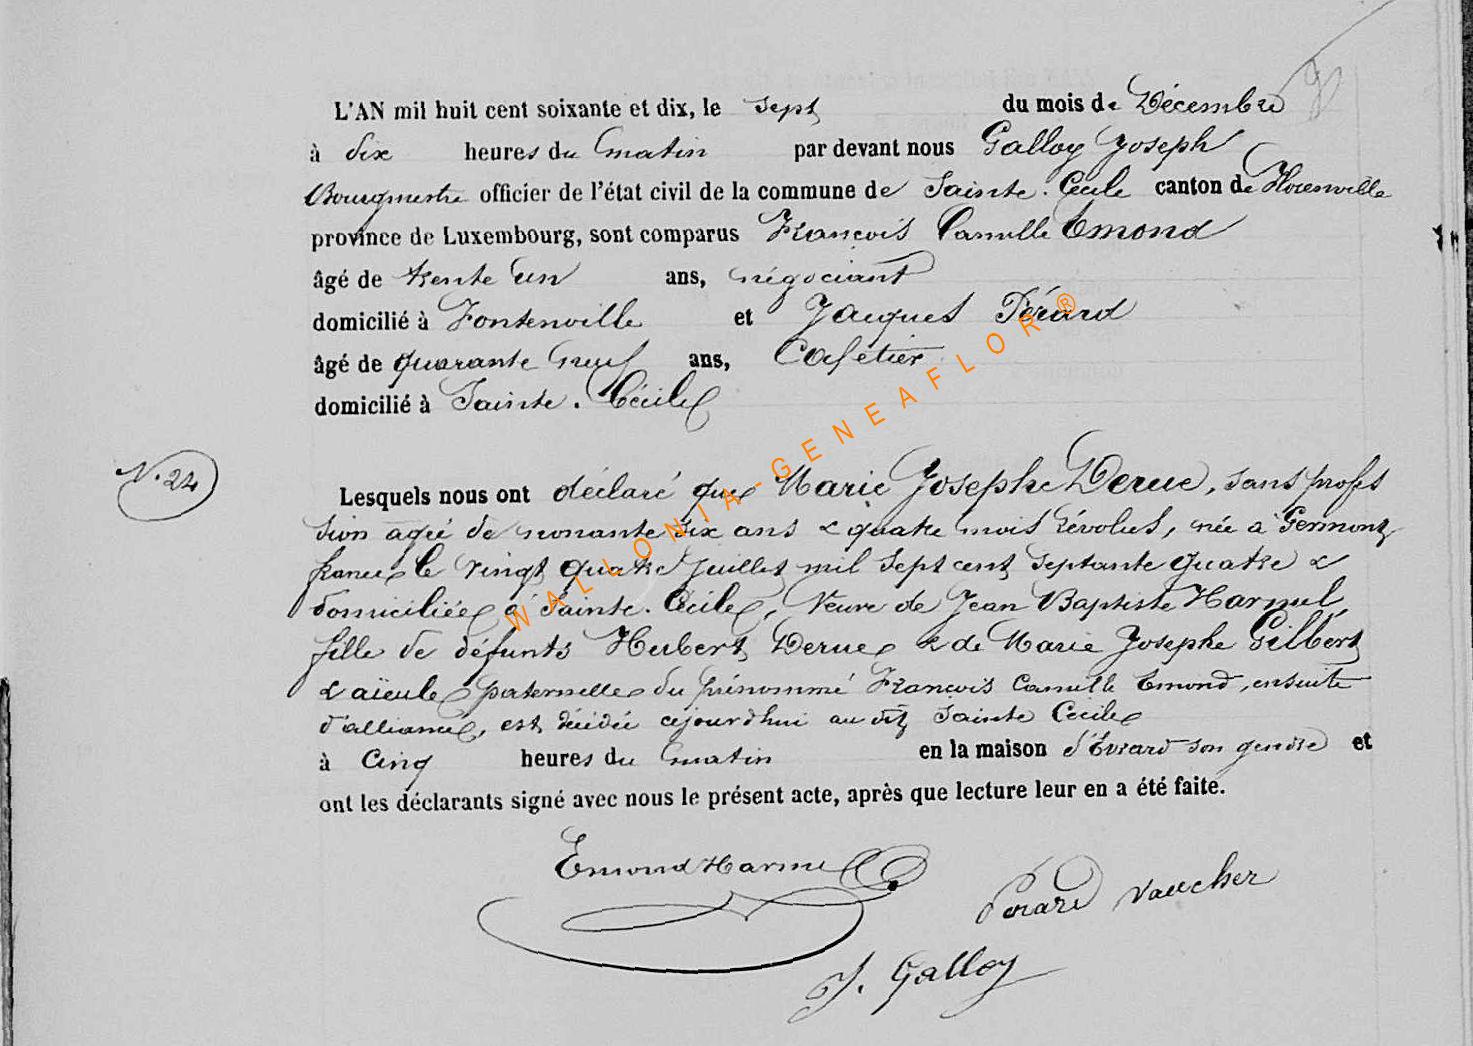 L'AN mil huit cent soixante et dix, le sept du mois de Décembre
à dix heures du matin par devant nous Galloy Joseph
Bourgmestre officier de l'état civil de la commune de Sainte-Cécile canton de Florenville
province de Luxembourg, sont comparus François Camille Emond
âgé de trente un ans, négociant
domicilié à Fontenoille et Jacques Pérard
âgé de quarante neuf ans, Cafetier
domicilié à Sainte-Cécile
N. 24
Lesquels nous ont déclaré que Marie Josephe Derue, sans profes
sion agée de nonante six ans & quatre mois révolus, née à Germont
france le vingt quatre Juillet mil sept cent septante quatre &
domiciliée à Sainte-Cécile, Veuve de Jean Baptiste Harmel,
fille de défunts Hubert Derue & de Marie Josephe Gilbert
& aïeule paternelle du prénommé François Camille Emond, ensuite
d'alliance, est décédée cejourd'hui au dit Sainte Cécile
à Cinq heures du matin en la maison d'Evrard son gendre et
ont les déclarants signé avec nous le présent acte, après que lecture leur en a été faite.
Emond Harmel
Perard Vaucher
J. Galloy
WALLONIA-GENEAFLOR®